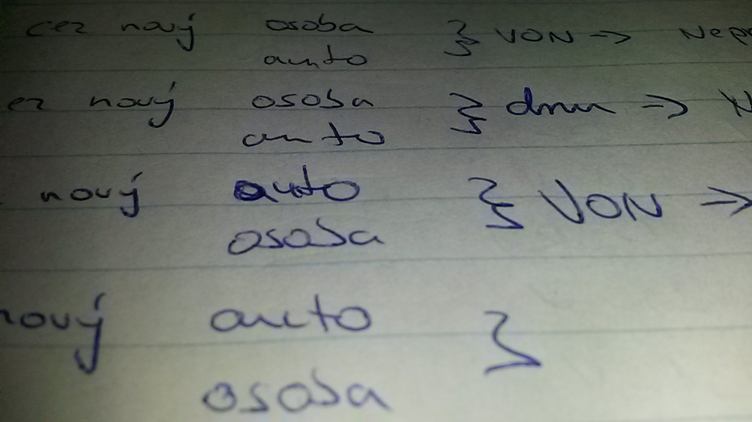 cez nový osoba } VON → Nepo
auto
ez nový osoba } dnu → N
auto
nový auto } VON →
osoba
nový auto }
osoba